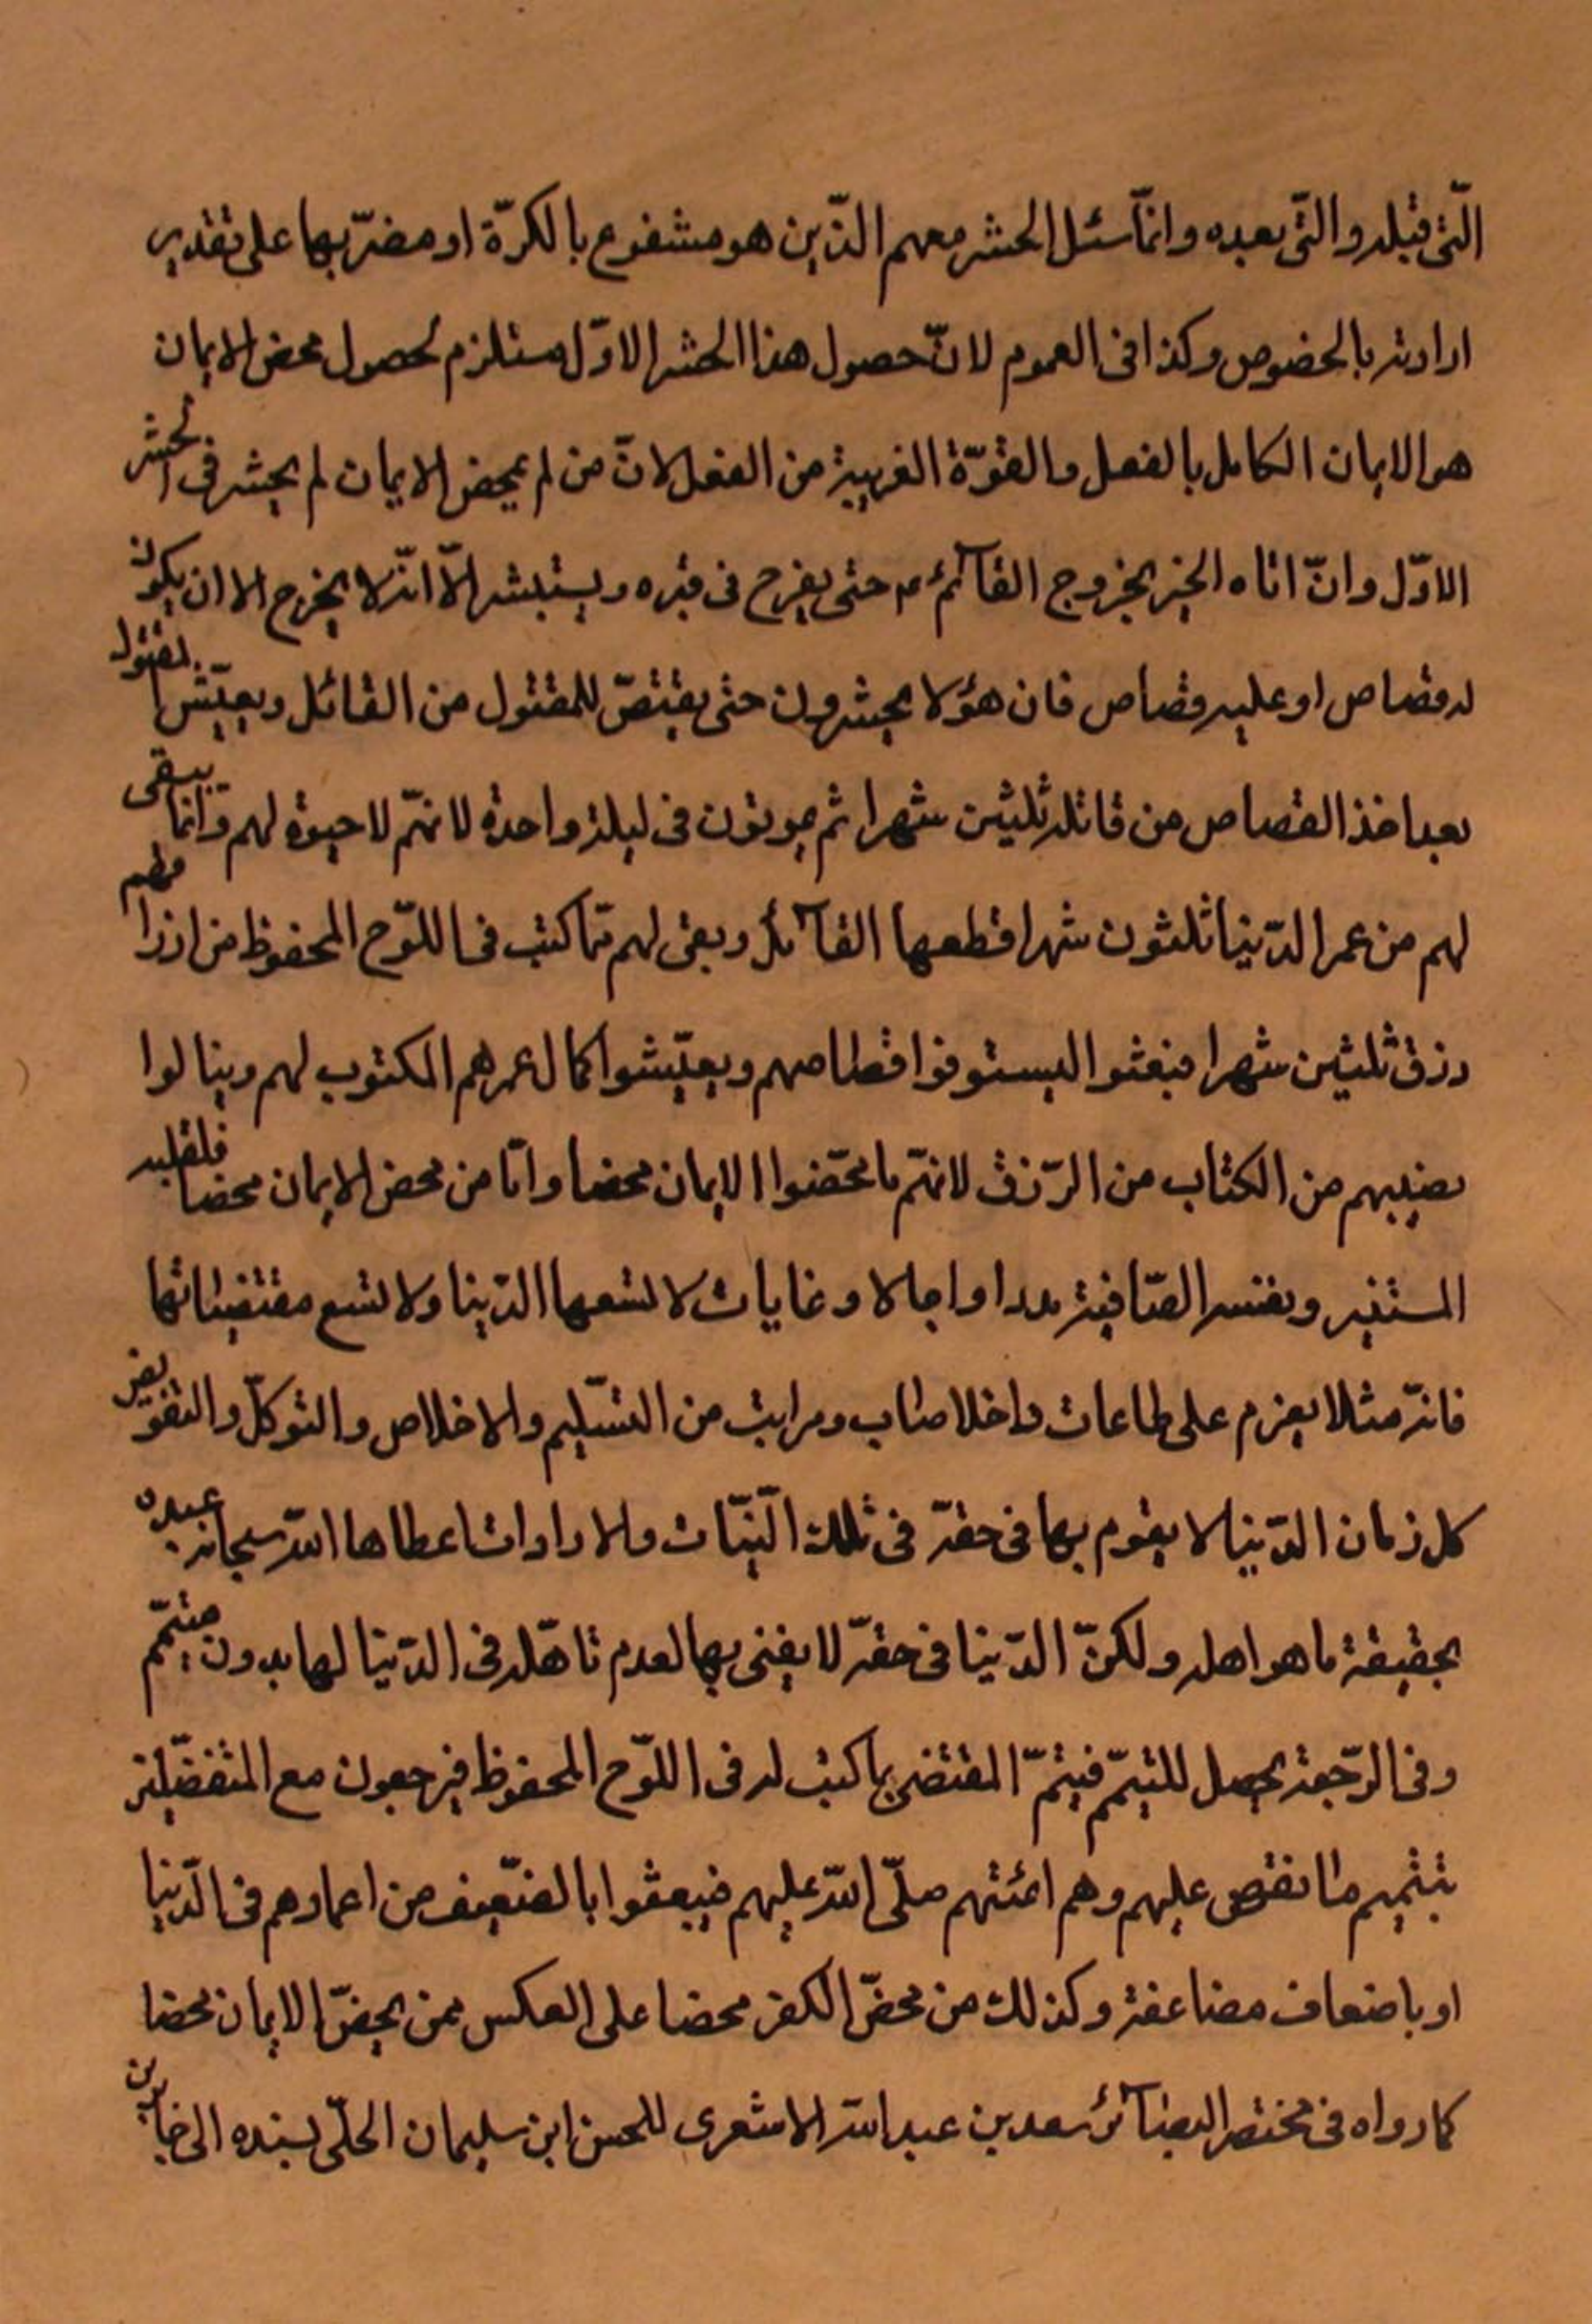 الّتى قبله والتّى بعده وانمّا سئل الحشر معهم الذّين هو مشفوع بالكرّة او مضرّ بها على تقدير
ارادته بالخصوص وكذا فى العموم لانّ حصول هذا الحشر الاوّل مستلزم لحصول محض الايمان
هو الايمان الكامل بالفعل والقوّة القريبة من الفعل لانّ من لم يمحض الايمان لم يحشر فى الحشر
الاوّل وانّ اتاه الخبر بخروج القآئم ع حتى يفرح فى قبره ويستبشر الاّ انّه لا يخرج الا ان يكون
له قصاص او عليه قصاص فان هؤلا يحشرون حتى يقتصّ للمقتول من القاتل ويعيّش المقتول
بعد اخذ القصاص من قاتله ثلثين شهرا ثم يموتون فى ليلة واحدة لانهّم لا حيوة لهم وانمّا يبقى
لهم من عمر الدّنيا ثلثون شهرا قطعها القآتل وبقى لهم ممّا كتب فى اللّوح المحفوظ من ارزاقهم
رزق ثلثين شهرا فبعثوا ليستوفوا قصاصهم ويعيّشوا كمال عمرهم المكتوب لهم وينالوا
نصيبهم من الكتاب من الرّزق لانهّم ما محّضوا الايمان محضا وامّا من محض الايمان محضا فلقلبه
المستنير ونفسه الصّافية مددا واجالا وغايات لا تسعها الدّنيا ولا تسع مقتضياتها
فانّه مثلا يعزم على طاعات واخلاصاب ومراتب من التسّليم والاخلاص والتوكلّ والتفويض
كل زمان الدّنيا لا يقوم بها فى حقّه فى تلك النّيّات والارادات اعطاها اللّه سبحانه عبده
بحقيقة ما هو اهله ولكنّ الدّنيا فى حقّه لا يفنى بها لعدم تاهّله فى الدّنيا لها بدون متمّم
وفى الرّجعة يحصل للتيمّم فيتمّ المقتضى بما كتب له فى اللّوح المحفوظ فيرجعون مع المتفضّلين
بتتميم ما نقص عليهم وهم ائمتهم صلّى اللّه عليهم فيبعثوا بالضّعيف من اعمارهم فى الدّنيا
او باضعاف مضاعفة وكذلك من محضّ الكفر محضا على العكس ممن يحضّ الايمان محضا
كما رواه فى مختصر البصآئر سعد بن عبد اللّه الاشعرى للحسن ابن سليمان الحلّى بسنده الى جابر بن